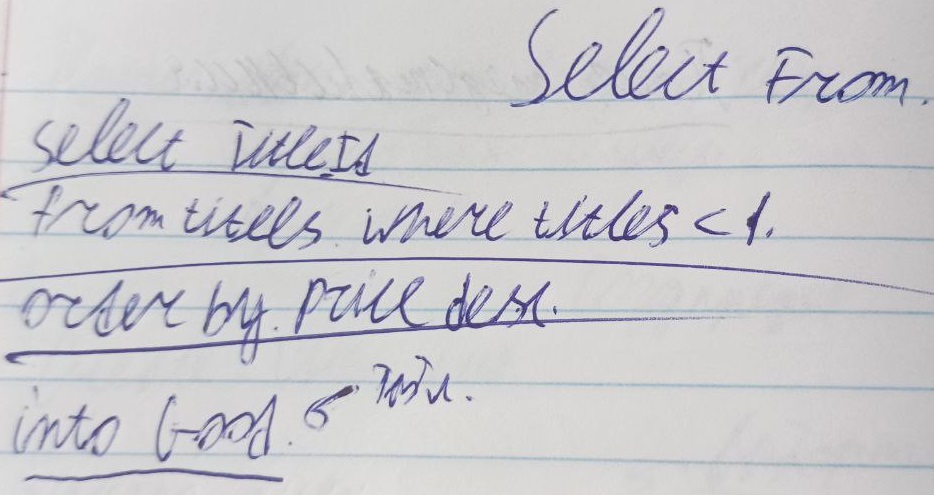 Select From.
select TitleId
from titels where titles < 1.
order by. price desc.
into Good.